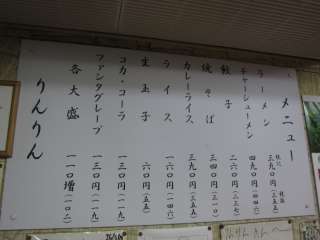 メニュー
ラーメン 三九〇円 (三五五)
チャーシューメン 四九〇円
餃子 二六〇円 (二三六)
焼きそば 三四〇円 (三一〇)
カレーライス 三九〇円 (三五五)
ライス 一六〇円 (一四六)
生玉子 六〇円 (五五)
コカ・コーラ 一三〇円 (一一九)
ファンタグレープ 一三〇円 (一一九)
各大盛 一一〇増 (一〇二)
りんりん